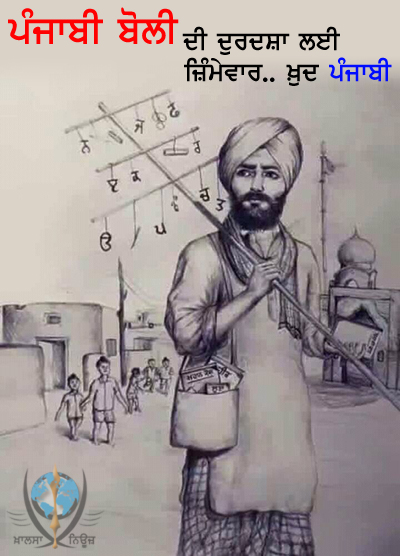 ਪੰਜਾਬੀ ਬੋਲੀ ਦੀ ਦੁਰਦਸ਼ਾ ਲਈ
ਜ਼ਿੰਮੇਵਾਰ.. ਖ਼ੁਦ ਪੰਜਾਬੀ
ਨ ਜੋ ਢ
ੲ ਕ ਰ
ੳ / ਪ ਚ ਤ
ਖ਼ਾਲਸਾ ਨਿਊਜ਼